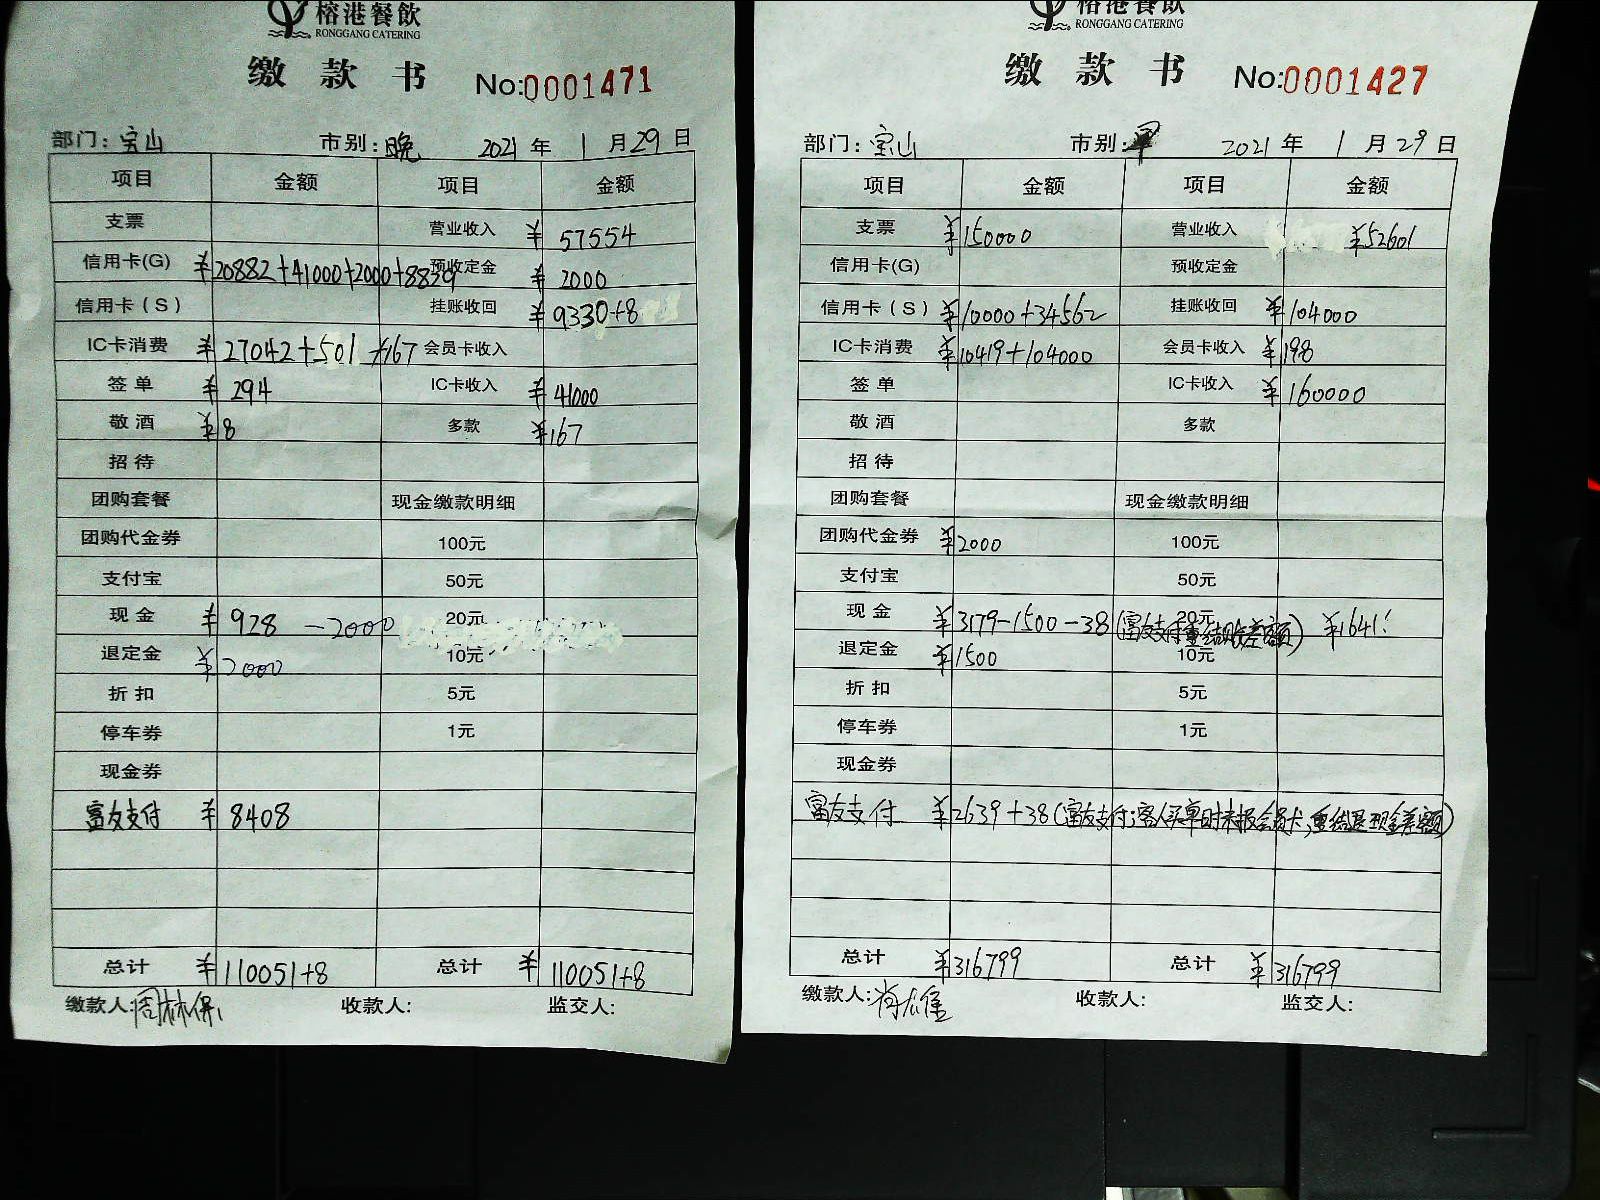 榕港餐飲
RONGGANG CATERING
缴款书 No:0001471
部门: 宝山 市别: 晚 2021 年 1 月 29 日
项目 金额 项目 金额
支票 营业收入 ¥ 57554
信用卡(G) ¥20882+41000+2000+8839 预收定金 ¥ 2000
信用卡(S) 挂账收回 ¥9330+8
IC卡消费 ¥ 27042+501+167 会员卡收入
签单 ¥ 294 IC卡收入 ¥ 41000
敬酒 ¥8 多款 ¥167
招待
团购套餐 现金缴款明细
团购代金券 100元
支付宝 50元
现金 ¥ 928 -2000 20元
退定金 ¥2000 10元
折扣 5元
停车券 1元
现金券
富友支付 ¥ 8408
总计 ¥ 110051+8 总计 ¥ 110051+8
缴款人: 收款人: 监交人:
榕港餐飲
RONGGANG CATERING
缴款书 No:0001427
部门: 宝山 市别: 早 2021 年 1 月 29 日
项目 金额 项目 金额
支票 ¥150000 营业收入 ¥52601
信用卡(G) 预收定金
信用卡(S) ¥10000+34562 挂账收回 ¥104000
IC卡消费 ¥10419+104000 会员卡收入 ¥198
签单 IC卡收入 ¥160000
敬酒 多款
招待
团购套餐 现金缴款明细
团购代金券 ¥2000 100元
支付宝 50元
现金 ¥3179-1500-38(富友支付重结账差额) 20元 ¥1641!
退定金 ¥1500 10元
折扣 5元
停车券 1元
现金券
富友支付 ¥2639+38(富友支付;客人买单时未报会员卡,重结退现金差额)
总计 ¥316799 总计 ¥316799
缴款人: 收款人: 监交人: